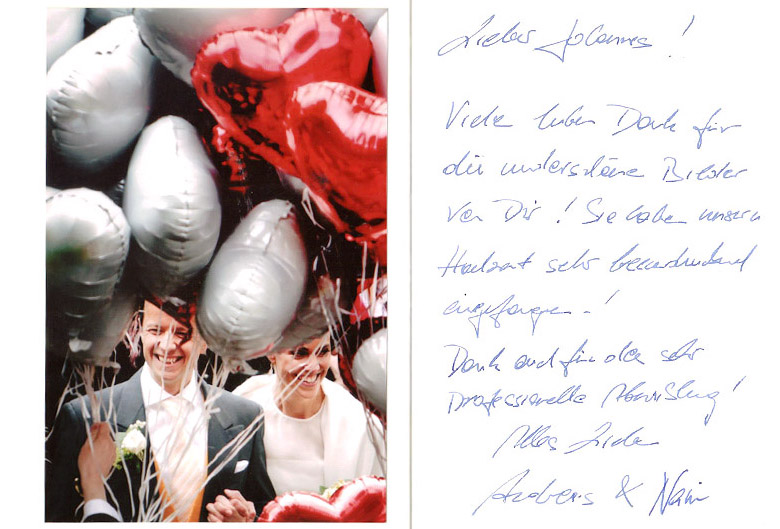 Lieber Johannes!
Viele lieben Dank für
die wunderschönen Bilder
von Dir! Sie haben unsere
Hochzeit sehr beeindruckend
eingefangen!
Dank auch für die sehr
professionelle Abwicklung!
Alles Liebe
Andreas &